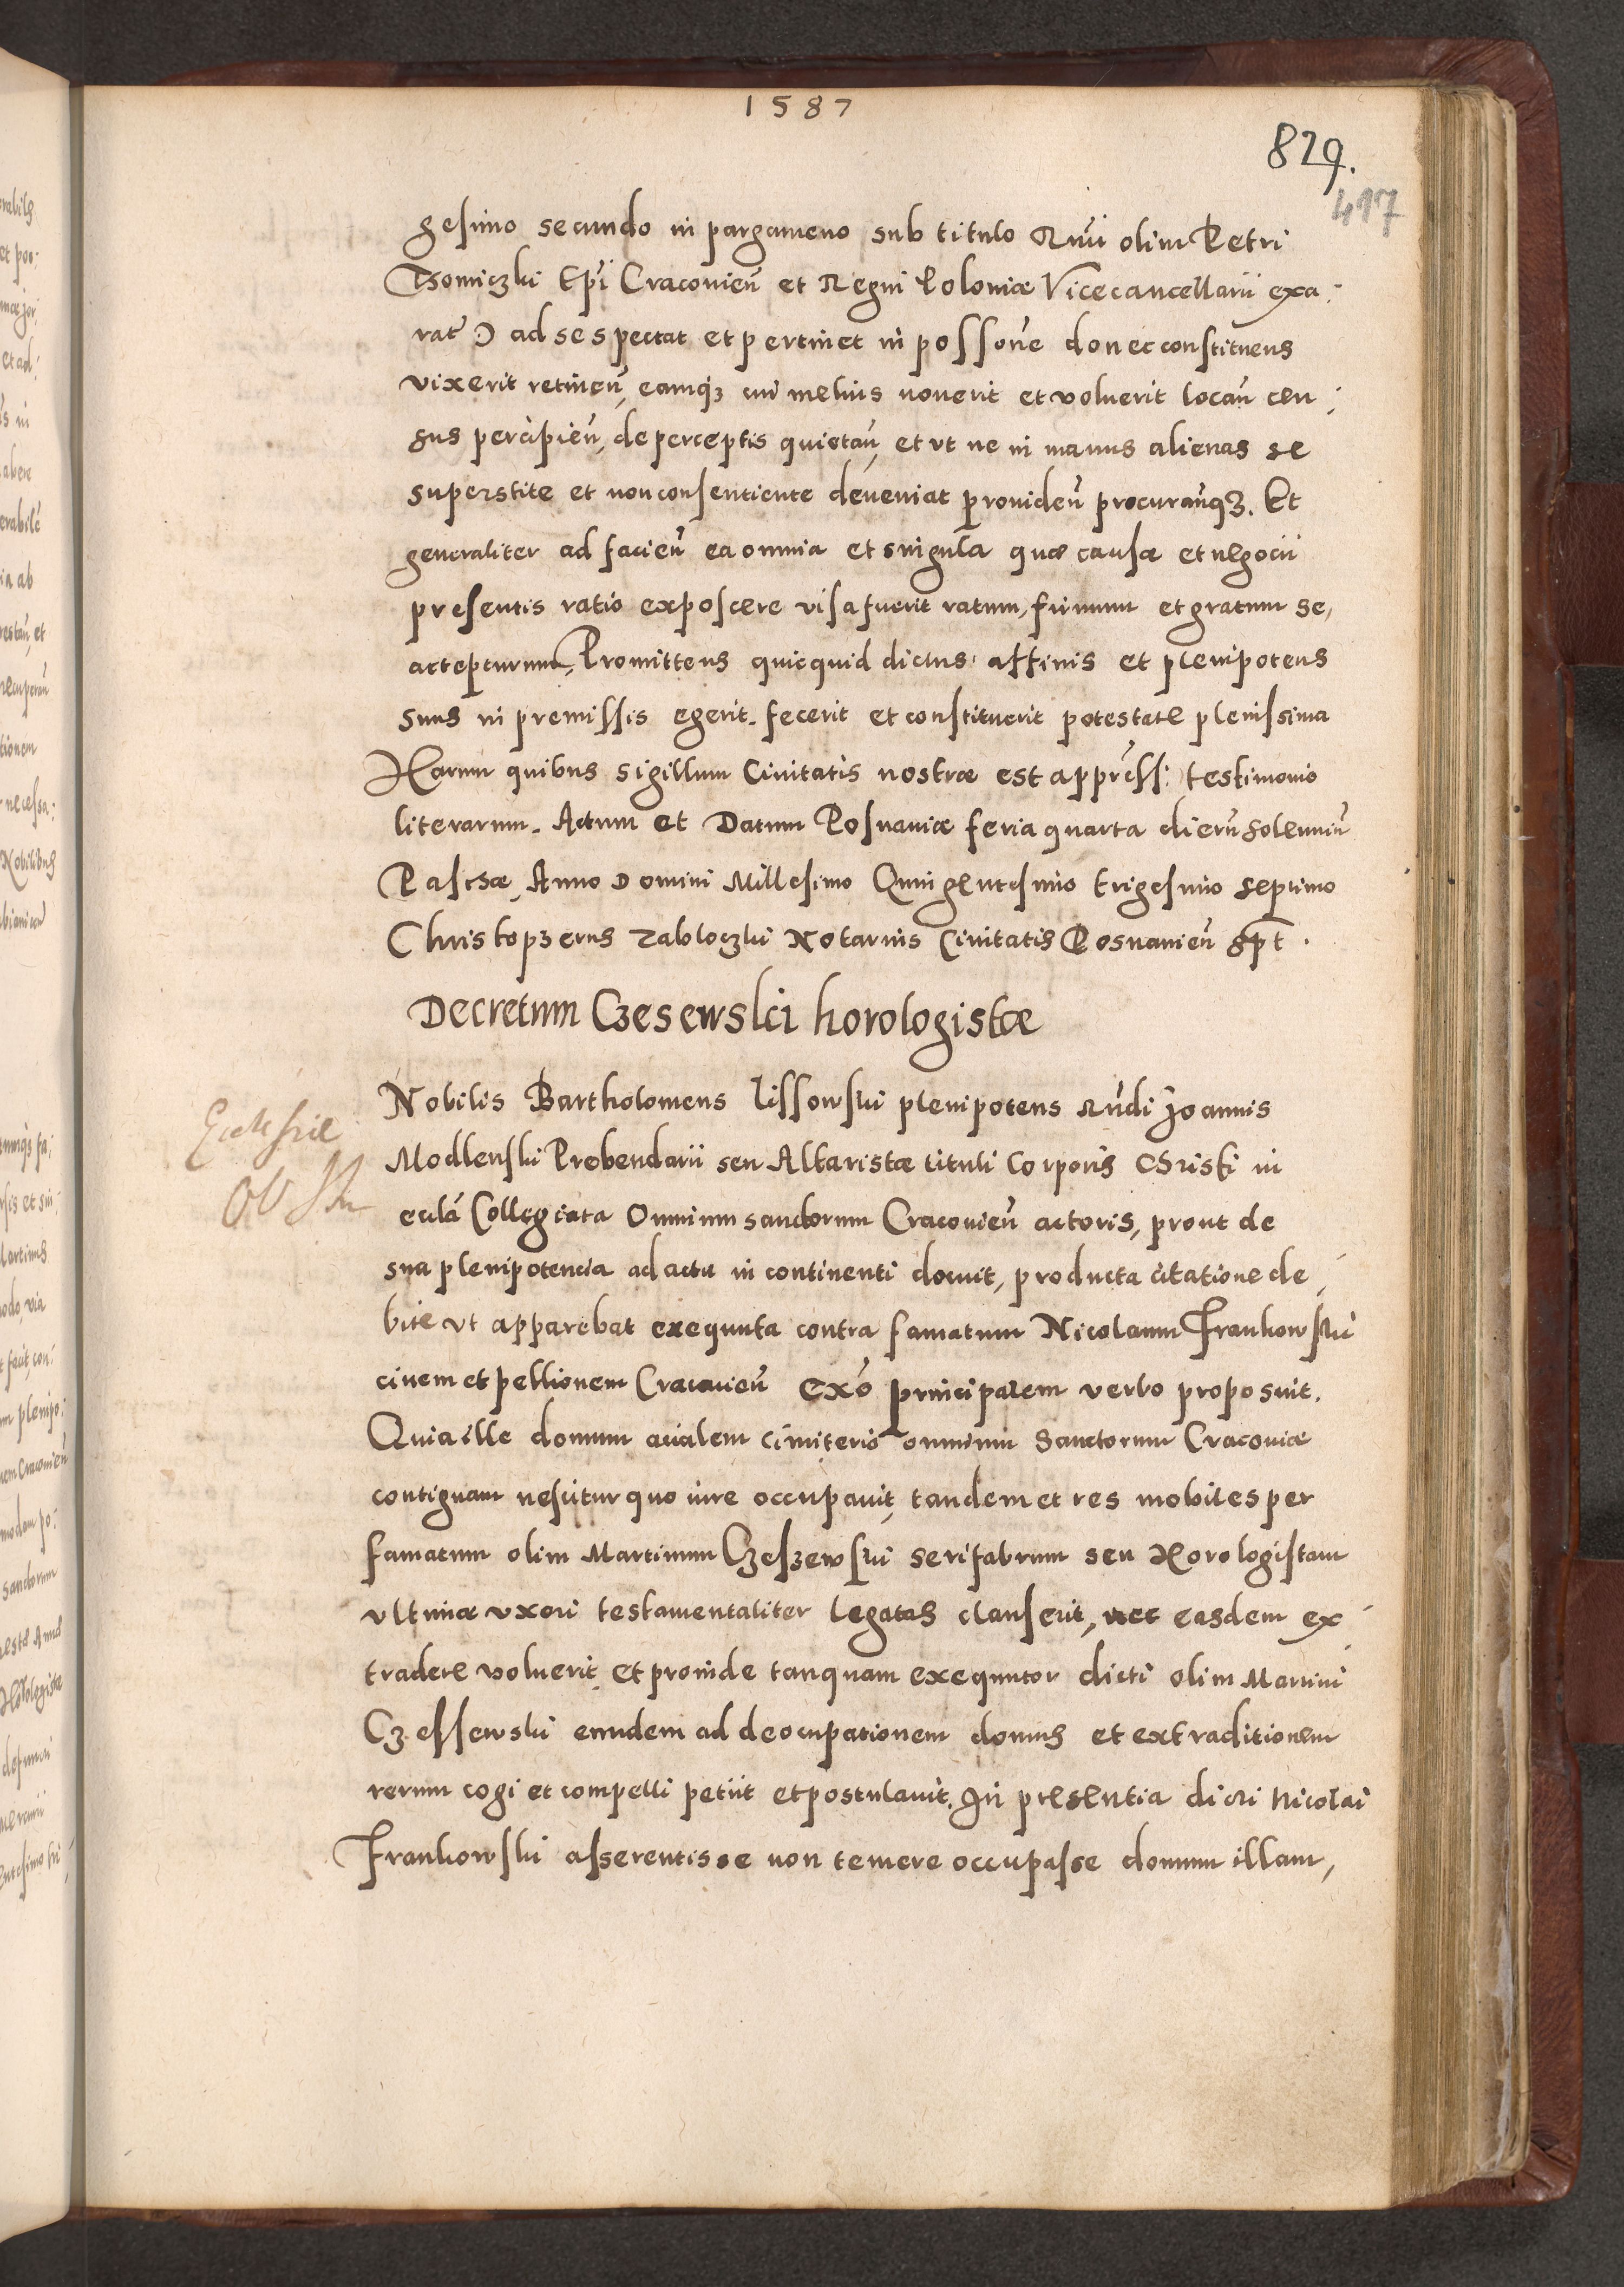 1587
829.
417
gesimo secundo in pargameno sub titulo Rmi olim Petri
Thomiczki Epi Cracovien et Regni Poloniæ Vicecancellarii exa:
rat ad se spectat et pertinet in possone donec constituens
vixerit retinen, eamq3 cui melius noverit et voluerit locan cen:
sus percipien, de perceptis quietan, et vt ne in manus alienas se
superstite et non consentiente deveniat providen procuranq3. Et
generaliter ad facien ea omnia et singula quæ causæ et negocii
presentis ratio exposcere visa fuerit ratum, firmum et gratum se,
actepturum, Promittens quicquid dictus affinis et plenipotens
suus in premissis egerit. fecerit et constituerit potestate plenissima
Harum quibus sigillum Civitatis nostræ est appressi: testimonio
literarum. Actum et Datum Posnaniæ feria quarta dieru solemniu
Paschæ, Anno Domini Millesimo Quingentesimo trigesimo septimo
Christopherus Zabloczki Notarius Civitatis Posnanien spt.
Decretum Czesewski horologistæ
Nobilis Bartholomeus Lissowski plenipotens Rndi Joannis
Modlenski Prebendarii seu Altaristæ tituli Corporis Christi in
Ecclesiæ
eccla Collegiata Omnium sanctorum Cracovien actoris, prout de
sua plenipotencia ad acta in continenti docuit, producta citatione de
bite vt apparebat exequuta contra famatum Nicolaum Frankowski
civem et pellionem Cracovien exo principalem verbo proposuit.
Quia ille domum acialem cimiterio omnium Sanctorum Cracoviæ
contiguam nescitur quo iure occupavit, tandem et res mobiles per
famatum olim Martinum Czeszewski serifabrum seu Horologistam
vltimæ uxori testamentaliter legatas clauserit, nec easdem ex
tradere voluerit, et proinde tanquam exequutor dicti olim Martini
Czessewski eundem ad deocupationem domus et extraditionem
rerum cogi et compelli petiit et postulavit. In presentia dicti Nicolai
Frankowski asserentis se non temere occupasse domum illam,